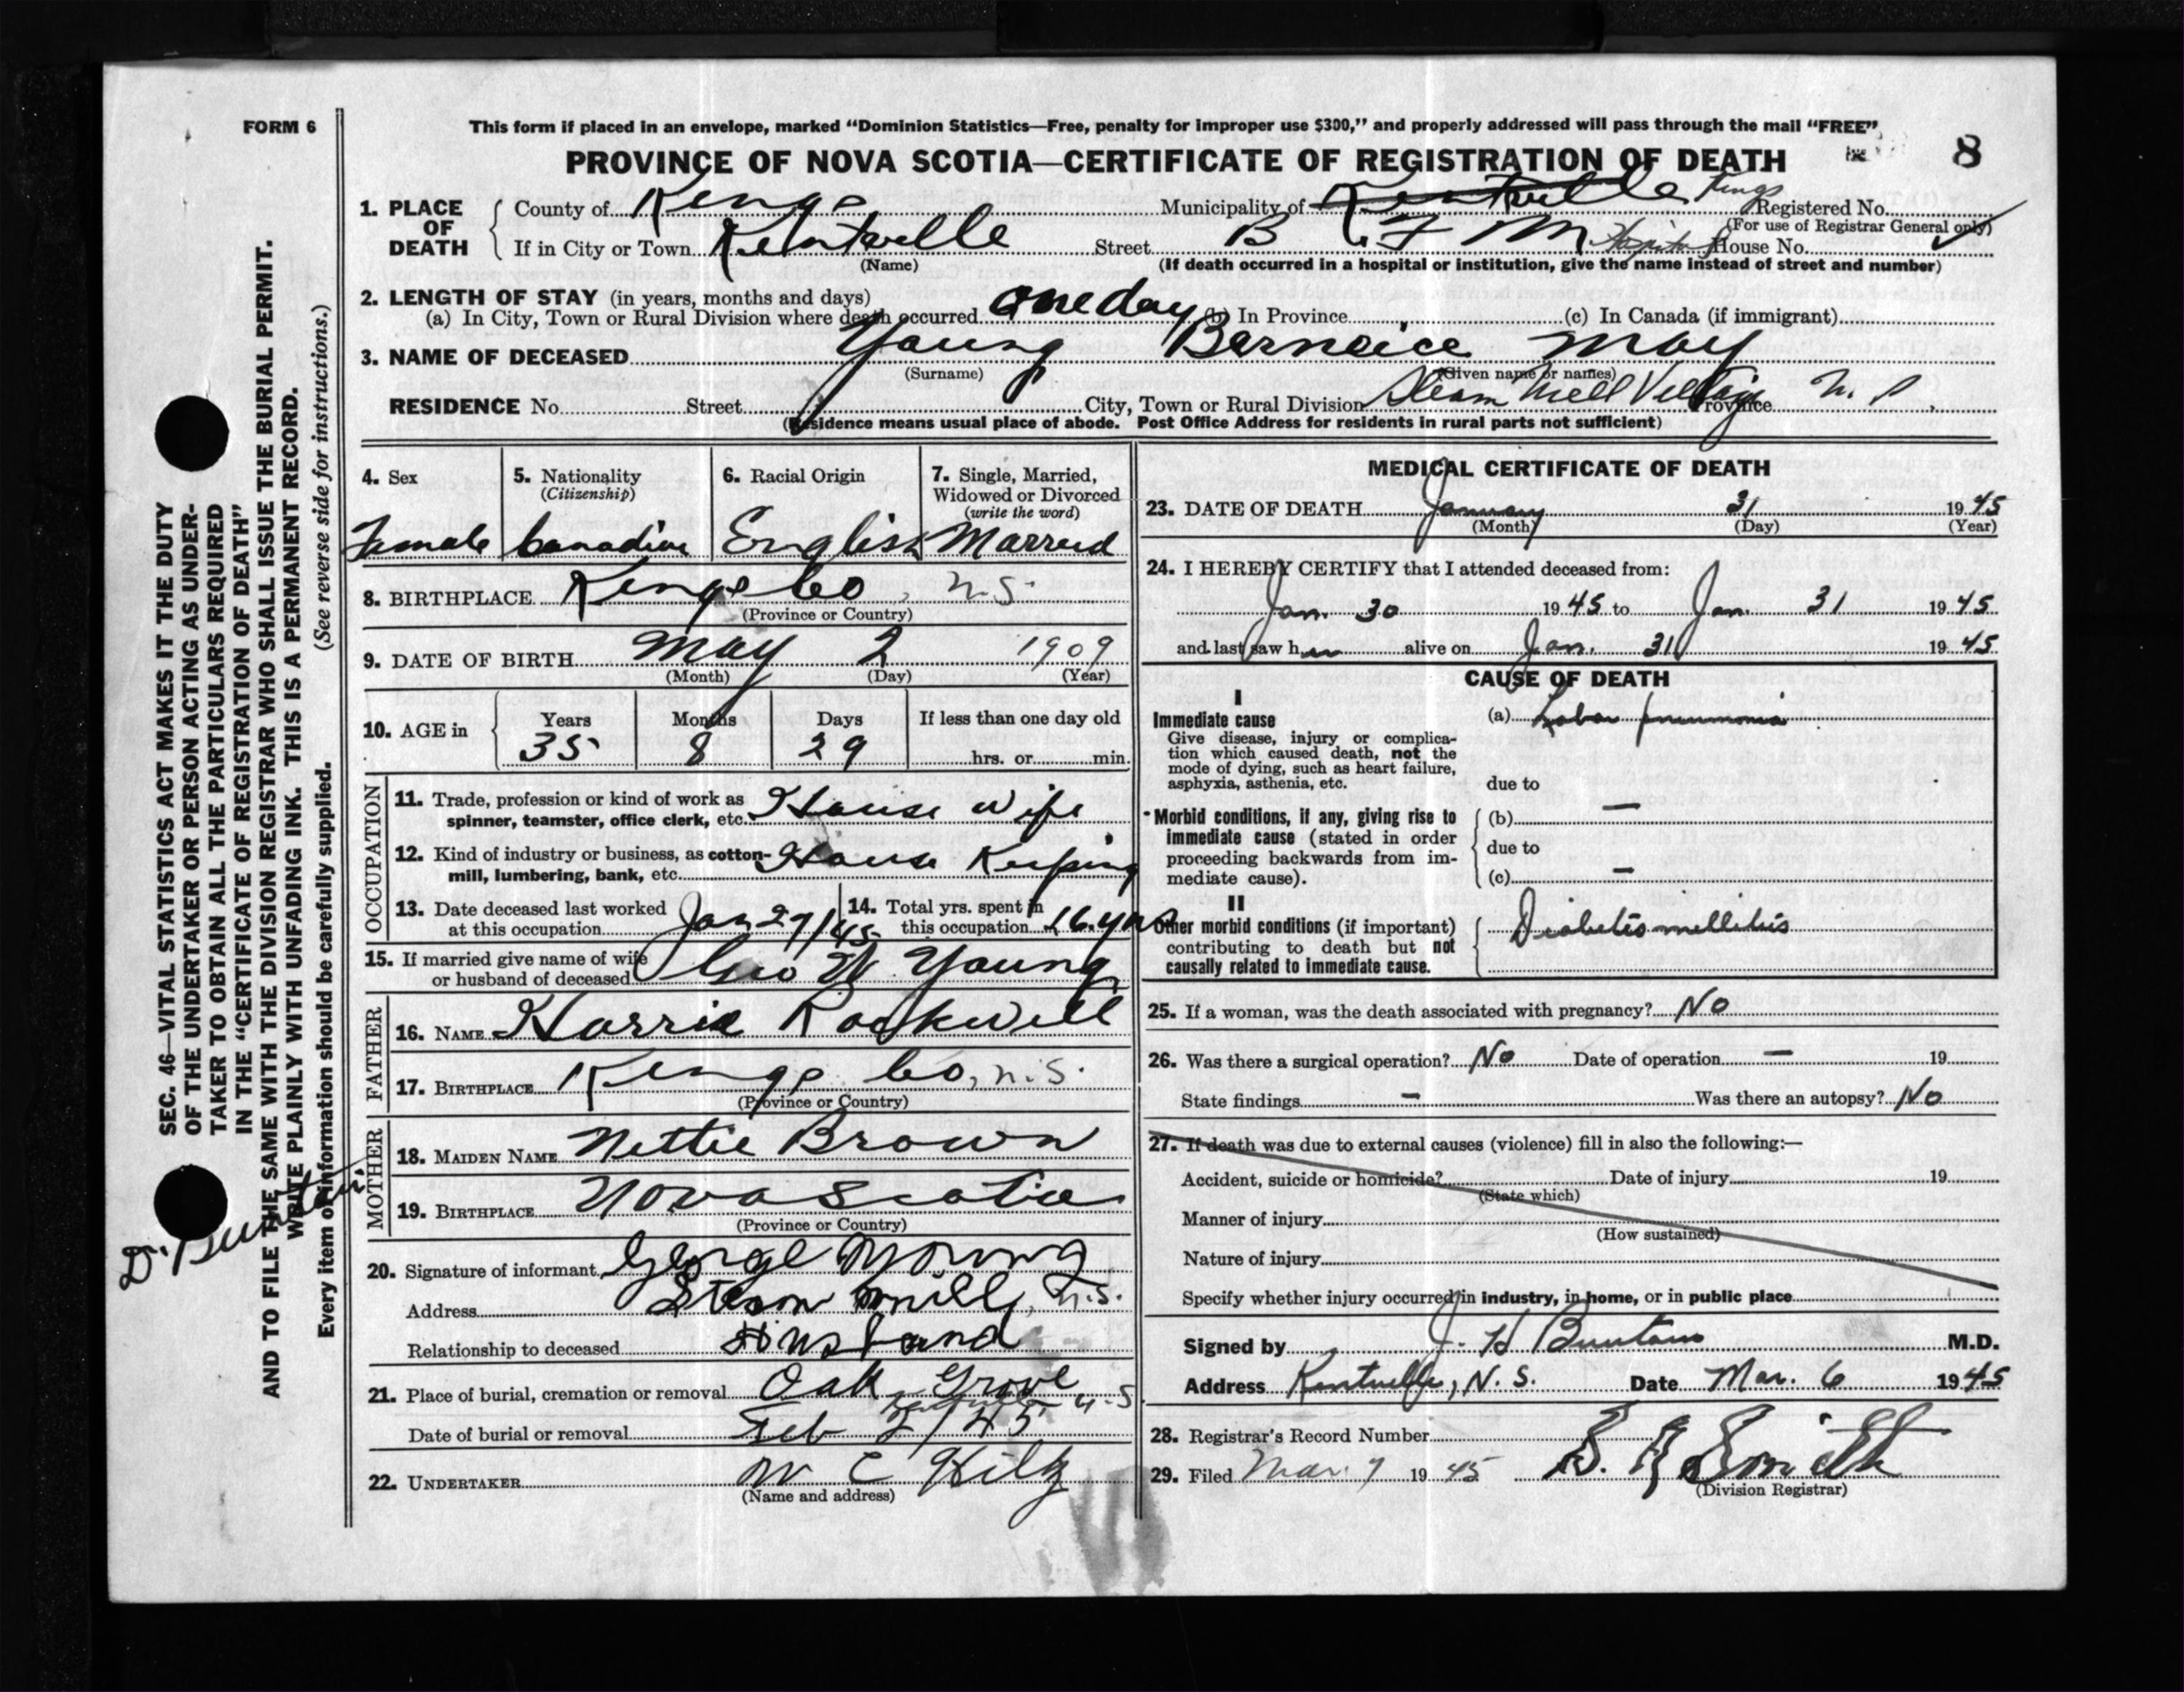 FORM 6
This form if placed in an envelope, marked “Dominion Statistics—Free, penalty for improper use $300,” and properly addressed will pass through the mail “FREE”
PROVINCE OF NOVA SCOTIA—CERTIFICATE OF REGISTRATION OF DEATH
8
1. PLACE OF DEATH
County of Kings Municipality of Kentville Kings Registered No.
(For use of Registrar General only)
If in City or Town Kentville Street B F M Hospital House No.
(Name) (If death occurred in a hospital or institution, give the name instead of street and number)
2. LENGTH OF STAY (in years, months and days)
(a) In City, Town or Rural Division where death occurred one day (b) In Province (c) In Canada (if immigrant)
3. NAME OF DECEASED Young Berneice May
(Surname) (Given name or names)
RESIDENCE No. Street City, Town or Rural Division Steam Mill Village Province N. S.
(Residence means usual place of abode. Post Office Address for residents in rural parts not sufficient)
4. Sex
Female
5. Nationality
(Citizenship)
Canadian
6. Racial Origin
English
7. Single, Married,
Widowed or Divorced
(write the word)
Married
8. BIRTHPLACE Kings Co, N.S.
(Province or Country)
9. DATE OF BIRTH May 2 1909
(Month) (Day) (Year)
10. AGE in
Years Months Days If less than one day old
35 8 29 hrs. or min.
OCCUPATION
11. Trade, profession or kind of work as
spinner, teamster, office clerk, etc. House Wife
12. Kind of industry or business, as cotton-
mill, lumbering, bank, etc. House Keeping
13. Date deceased last worked
at this occupation Jan 27/45
14. Total yrs. spent in
this occupation 16. yrs
15. If married give name of wife
or husband of deceased Geo W Young
FATHER
16. NAME Harrie Rockwell
17. BIRTHPLACE Kings Co, N.S.
(Province or Country)
MOTHER
18. MAIDEN NAME Nettie Brown
19. BIRTHPLACE Nova Scotia
(Province or Country)
20. Signature of informant George Young
Address Steam Mill, N.S.
Relationship to deceased Husband
21. Place of burial, cremation or removal Oak Grove
Kentville N.S
Date of burial or removal Feb 2/45
22. UNDERTAKER W C Hiltz
(Name and address)
MEDICAL CERTIFICATE OF DEATH
23. DATE OF DEATH January 31 1945
(Month) (Day) (Year)
24. I HEREBY CERTIFY that I attended deceased from:
Jan. 30 1945 to Jan. 31 1945
and last saw her alive on Jan. 31 1945
CAUSE OF DEATH
I
Immediate cause
Give disease, injury or complica-
tion which caused death, not the
mode of dying, such as heart failure,
asphyxia, asthenia, etc.
(a) Lobar pneumonia
due to
Morbid conditions, if any, giving rise to
immediate cause (stated in order
proceeding backwards from im-
mediate cause).
(b) —
due to
(c) —
II
Other morbid conditions (if important)
contributing to death but not
causally related to immediate cause.
Diabetes mellitus
25. If a woman, was the death associated with pregnancy? No
26. Was there a surgical operation? No Date of operation — 19
State findings — Was there an autopsy? No
27. If death was due to external causes (violence) fill in also the following:—
Accident, suicide or homicide? Date of injury 19
(State which)
Manner of injury
(How sustained)
Nature of injury
Specify whether injury occurred in industry, in home, or in public place
Signed by J. H Buntain M.D.
Address Kentville, N. S. Date Mar. 6 1945
28. Registrar's Record Number
29. Filed Mar. 7 1945 Smith
(Division Registrar)
SEC. 46—VITAL STATISTICS ACT MAKES IT THE DUTY
OF THE UNDERTAKER OR PERSON ACTING AS UNDER-
TAKER TO OBTAIN ALL THE PARTICULARS REQUIRED
IN THE “CERTIFICATE OF REGISTRATION OF DEATH”
AND TO FILE THE SAME WITH THE DIVISION REGISTRAR WHO SHALL ISSUE THE BURIAL PERMIT.
WRITE PLAINLY WITH UNFADING INK. THIS IS A PERMANENT RECORD.
Every item of information should be carefully supplied. (See reverse side for instructions.)
Dr. Buntain